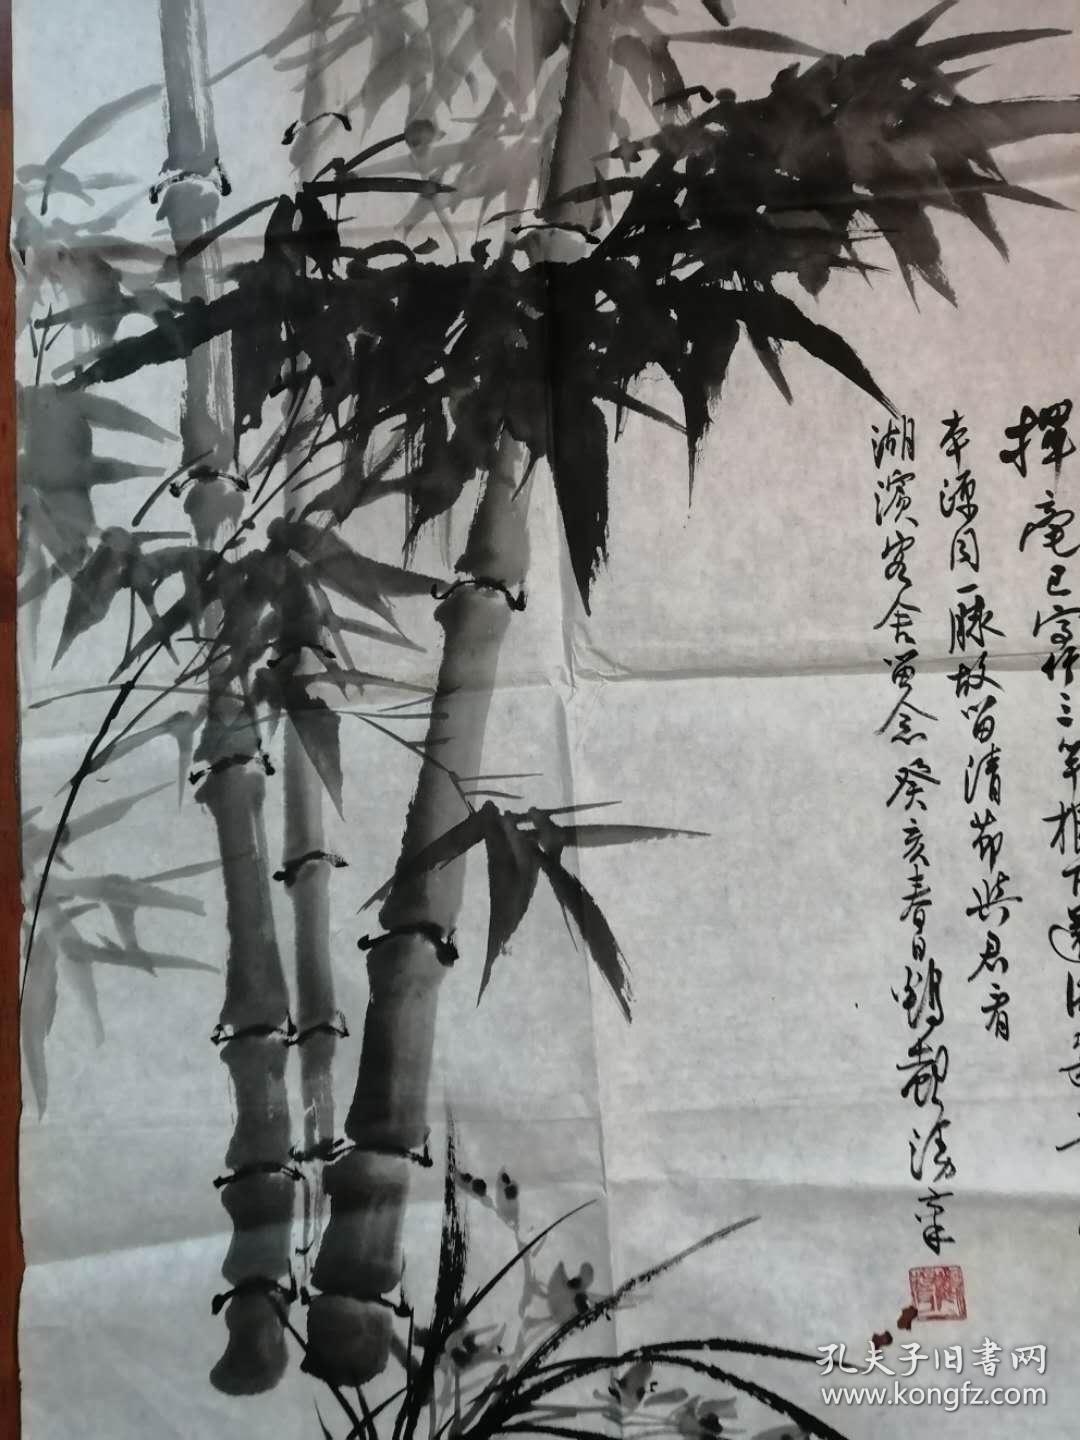 揮毫已寫竹三竿根下還
本源同一脉故留清节與君看
湖濱客舍留念癸亥春日鶴
孔夫子旧書网
www.kongfz.com